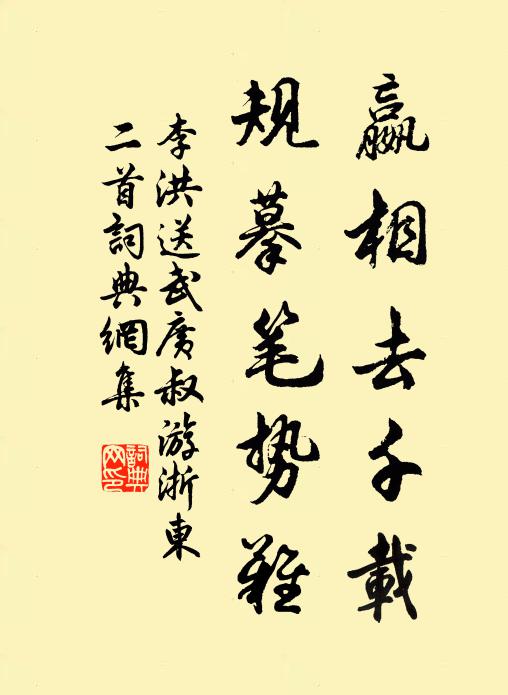 嬴相去千載
規摹笔势難
李洪送武廣叔游浙東
二首詞典網集
詞典
网印